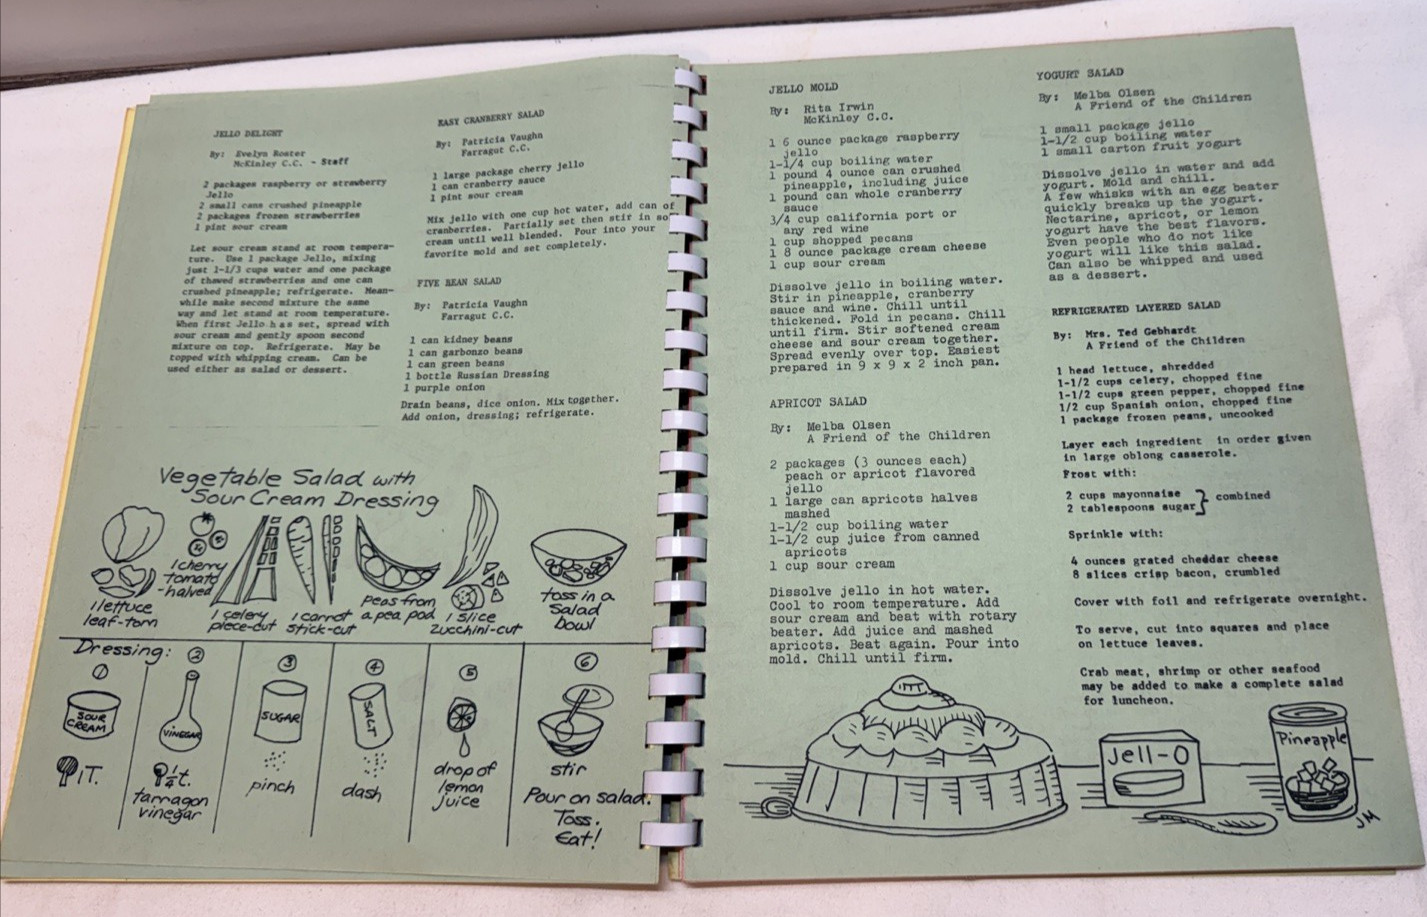 JELLO DELIGHT
By: Evelyn Roster
McKinley C.C. - Staff
2 packages raspberry or strawberry
Jello
2 small cans crushed pineapple
2 packages frozen strawberries
1 pint sour cream
Let sour cream stand at room tempera-
ture. Use 1 package Jello, mixing
just 1-1/3 cups water and one package
of thawed strawberries and one can
crushed pineapple; refrigerate. Mean-
while make second mixture the same
way and let stand at room temperature.
When first Jello has set, spread with
sour cream and gently spoon second
mixture on top. Refrigerate. May be
topped with whipping cream. Can be
used either as salad or dessert.
EASY CRANBERRY SALAD
By: Patricia Vaughn
Farragut C.C.
1 large package cherry jello
1 can cranberry sauce
1 pint sour cream
Mix jello with one cup hot water, add can of
cranberries. Partially set then stir in so
cream until well blended. Pour into your
favorite mold and set completely.
FIVE BEAN SALAD
By: Patricia Vaughn
Farragut C.C.
1 can kidney beans
1 can garbonzo beans
1 can green beans
1 bottle Russian Dressing
1 purple onion
Drain beans, dice onion. Mix together.
Add onion, dressing; refrigerate.
Vegetable Salad with
Sour Cream Dressing
1 lettuce
leaf-torn
1 cherry
tomato
-halved
1 celery
piece-cut
1 carrot
stick-cut
peas from
a pea pod
1 slice
zucchini-cut
toss in a
salad
bowl
Dressing:
1
SOUR
CREAM
1T.
2
VINEGAR
1/4 t.
tarragon
vinegar
3
SUGAR
pinch
4
SALT
dash
5
drop of
lemon
juice
6
stir
Pour on salad.
Toss.
Eat!
JELLO MOLD
By: Rita Irwin
McKinley C.C.
1 6 ounce package raspberry
jello
1-1/4 cup boiling water
1 pound 4 ounce can crushed
pineapple, including juice
1 pound can whole cranberry
sauce
3/4 cup california port or
any red wine
1 cup shopped pecans
1 8 ounce package cream cheese
1 cup sour cream
Dissolve jello in boiling water.
Stir in pineapple, cranberry
sauce and wine. Chill until
thickened. Fold in pecans. Chill
until firm. Stir softened cream
cheese and sour cream together.
Spread evenly over top. Easiest
prepared in 9 x 9 x 2 inch pan.
APRICOT SALAD
By: Melba Olsen
A Friend of the Children
2 packages (3 ounces each)
peach or apricot flavored
jello
1 large can apricots halves
mashed
1-1/2 cup boiling water
1-1/2 cup juice from canned
apricots
1 cup sour cream
Dissolve jello in hot water.
Cool to room temperature. Add
sour cream and beat with rotary
beater. Add juice and mashed
apricots. Beat again. Pour into
mold. Chill until firm.
YOGURT SALAD
By: Melba Olsen
A Friend of the Children
1 small package jello
1-1/2 cup boiling water
1 small carton fruit yogurt
Dissolve jello in water and add
yogurt. Mold and chill.
A few whisks with an egg beater
quickly breaks up the yogurt.
Nectarine, apricot, or lemon
yogurt have the best flavors.
Even people who do not like
yogurt will like this salad.
Can also be whipped and used
as a dessert.
REFRIGERATED LAYERED SALAD
By: Mrs. Ted Gebhardt
A Friend of the Children
1 head lettuce, shredded
1-1/2 cups celery, chopped fine
1-1/2 cups green pepper, chopped fine
1/2 cup Spanish onion, chopped fine
1 package frozen peans, uncooked
Layer each ingredient in order given
in large oblong casserole.
Frost with:
2 cups mayonnaise
2 tablespoons sugar } combined
Sprinkle with:
4 ounces grated cheddar cheese
8 slices crisp bacon, crumbled
Cover with foil and refrigerate overnight.
To serve, cut into squares and place
on lettuce leaves.
Crab meat, shrimp or other seafood
may be added to make a complete salad
for luncheon.
Jell-O
Pineapple
JM